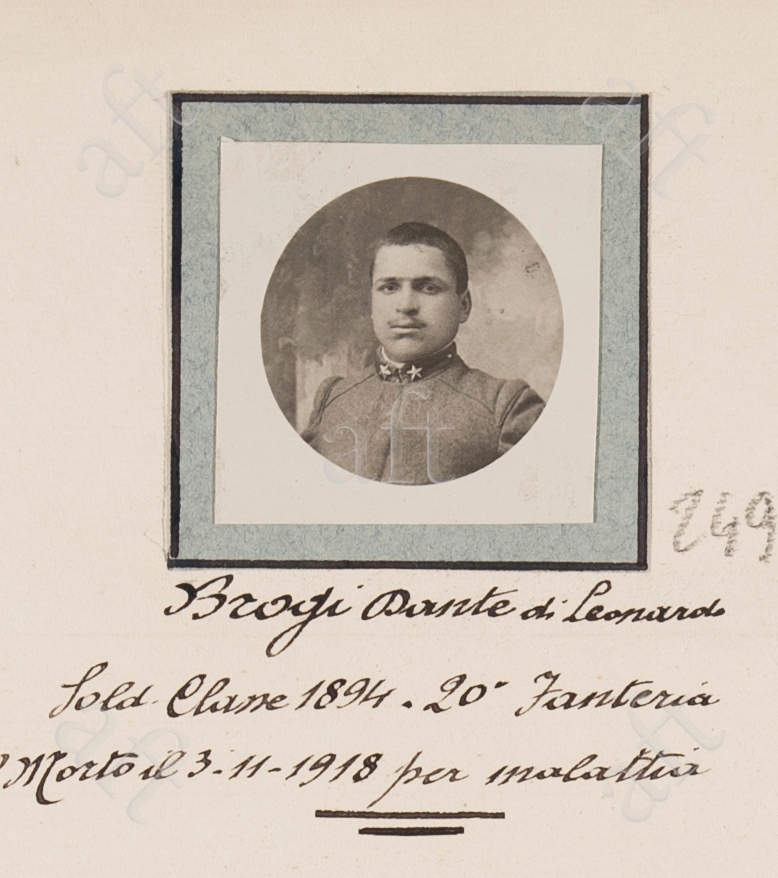 aft aft
aft
249
Brogi Dante di Leonardo
Sold. Classe 1894. 20° Fanteria
Morto il 3-11-1918 per malattia
aft aft